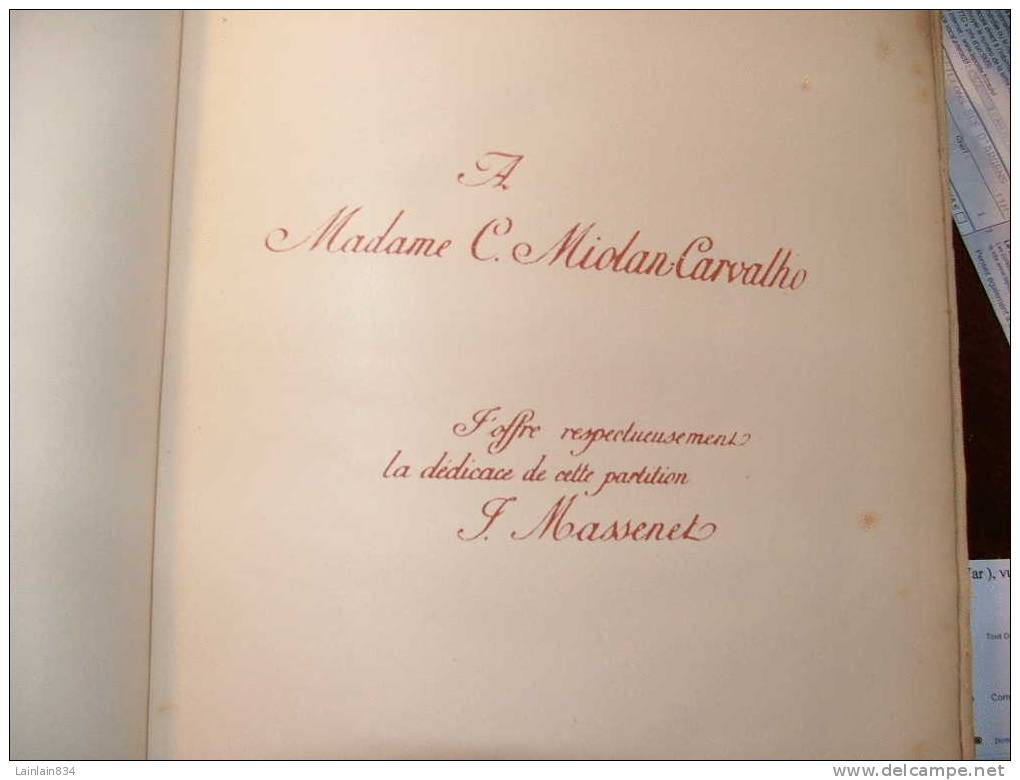 A
Madame C. Miolan-Carvalho
J'offre respectueusement
la dédicace de cette partition
J. Massenet
Var ), vu
Tout D
Com
Lainlain834
www.delcampe.net